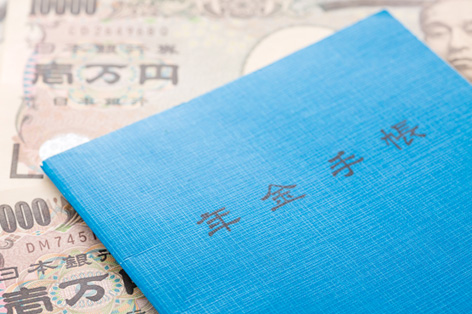 10000
DM 244968
日本銀行券
壱万円
日本銀行
年金手帳
10000
DM745
日本銀行
壱万